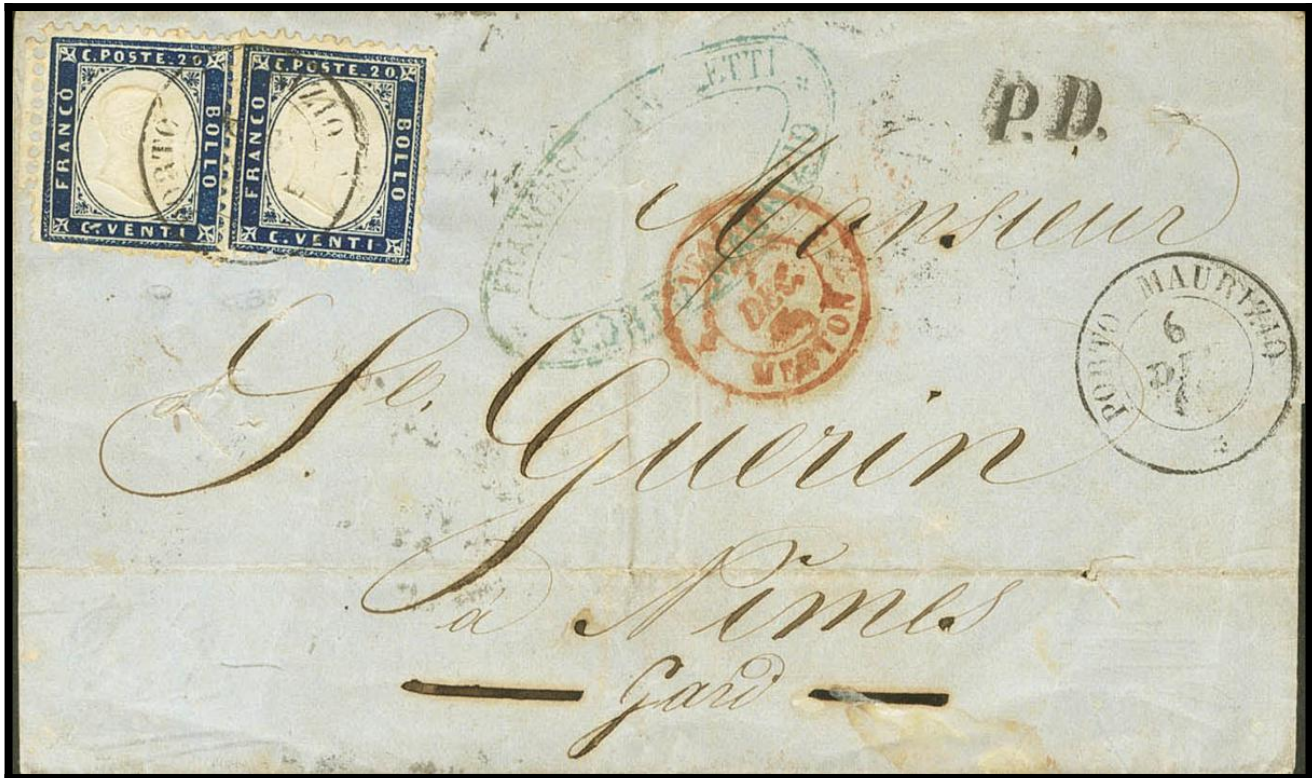 C. POSTE. 20
FRANCO
BOLLO
C. VENTI
C. POSTE. 20
FRANCO
BOLLO
C. VENTI
FRANCESCO ETTI
P.D.
Monsieur
DEC.
MENTON
PORTO MAURIZIO
6
Sl. Guerin
à Nîmes
Gard